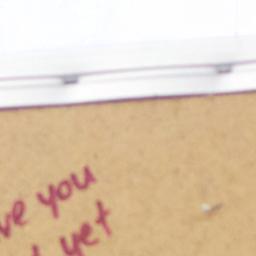 ve you
yet